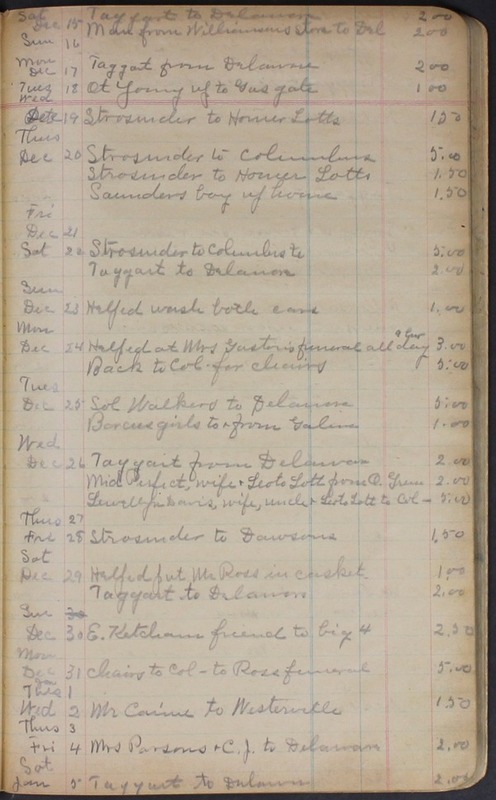 Sat Dec 15 Taggart to Delaware 2 00
Man from Williamsons to Del 2 00
Sun 16
Mon Dec 17 Taggat from Delaware 2 00
Tues 18 Ot Young up to Gas gate 1 00
Wed
Dec 19 Strosnider to Homer Lotts 1 50
Thurs
Dec 20 Strosnider to Columbus 5.00
Strosnider to Homer Lotts 1.50
Saunders boy up home 1.50
Fri
Dec 21
Sat 22 Strosnider to Columbus 5.00
Taggart to Delaware 2.00
Sun
Dec 23 Helped wash both cars 1.00
Mon
Dec 24 Helped at Mrs funeral all day 3.00
Back to Col - for chairs 5.00
Tues
Dec 25 Sol Walkers to Delaware 5.00
girls to + from Galena 1.00
Wed
Dec 26 Taggart from Delaware 2.00
Mid Perfect, wife + Leoto Lott from 2.00
Davis, wife, uncle + Leoto Lott to Col - 5.00
Thurs 27
Fri 28 Strosnider to Dawsons 1.50
Sat
Dec 29 Helped put Mr Ross in casket 1.00
Taggart to Delaware 2.00
Sun 30
Dec 30 E. Ketcham friend to big 4 2.50
Mon
Dec 31 chairs to Col - to Ross funeral 5.00
Jan
Tues 1
Wed 2 Mr Caine to Westerville 1.50
Thurs 3
Fri 4 Mrs Parsons + C. J. to Delaware 2.00
Sat
Jan 5 Taggart to Delaware 2.00